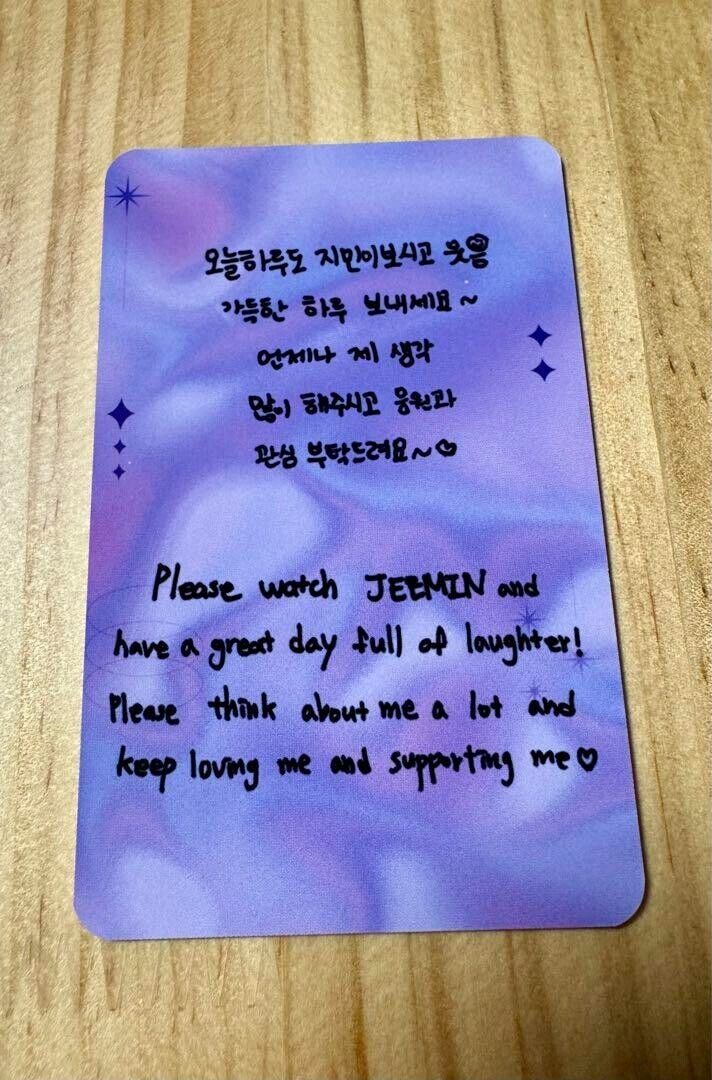 오늘하루도 지민이보시고 웃음
가득한 하루 보내세요~
언제나 제 생각
많이 해주시고 응원과
관심 부탁드려요~♡
Please watch JEEMIN and
have a great day full of laughter!
Please think about me a lot and
keep loving me and supporting me♡